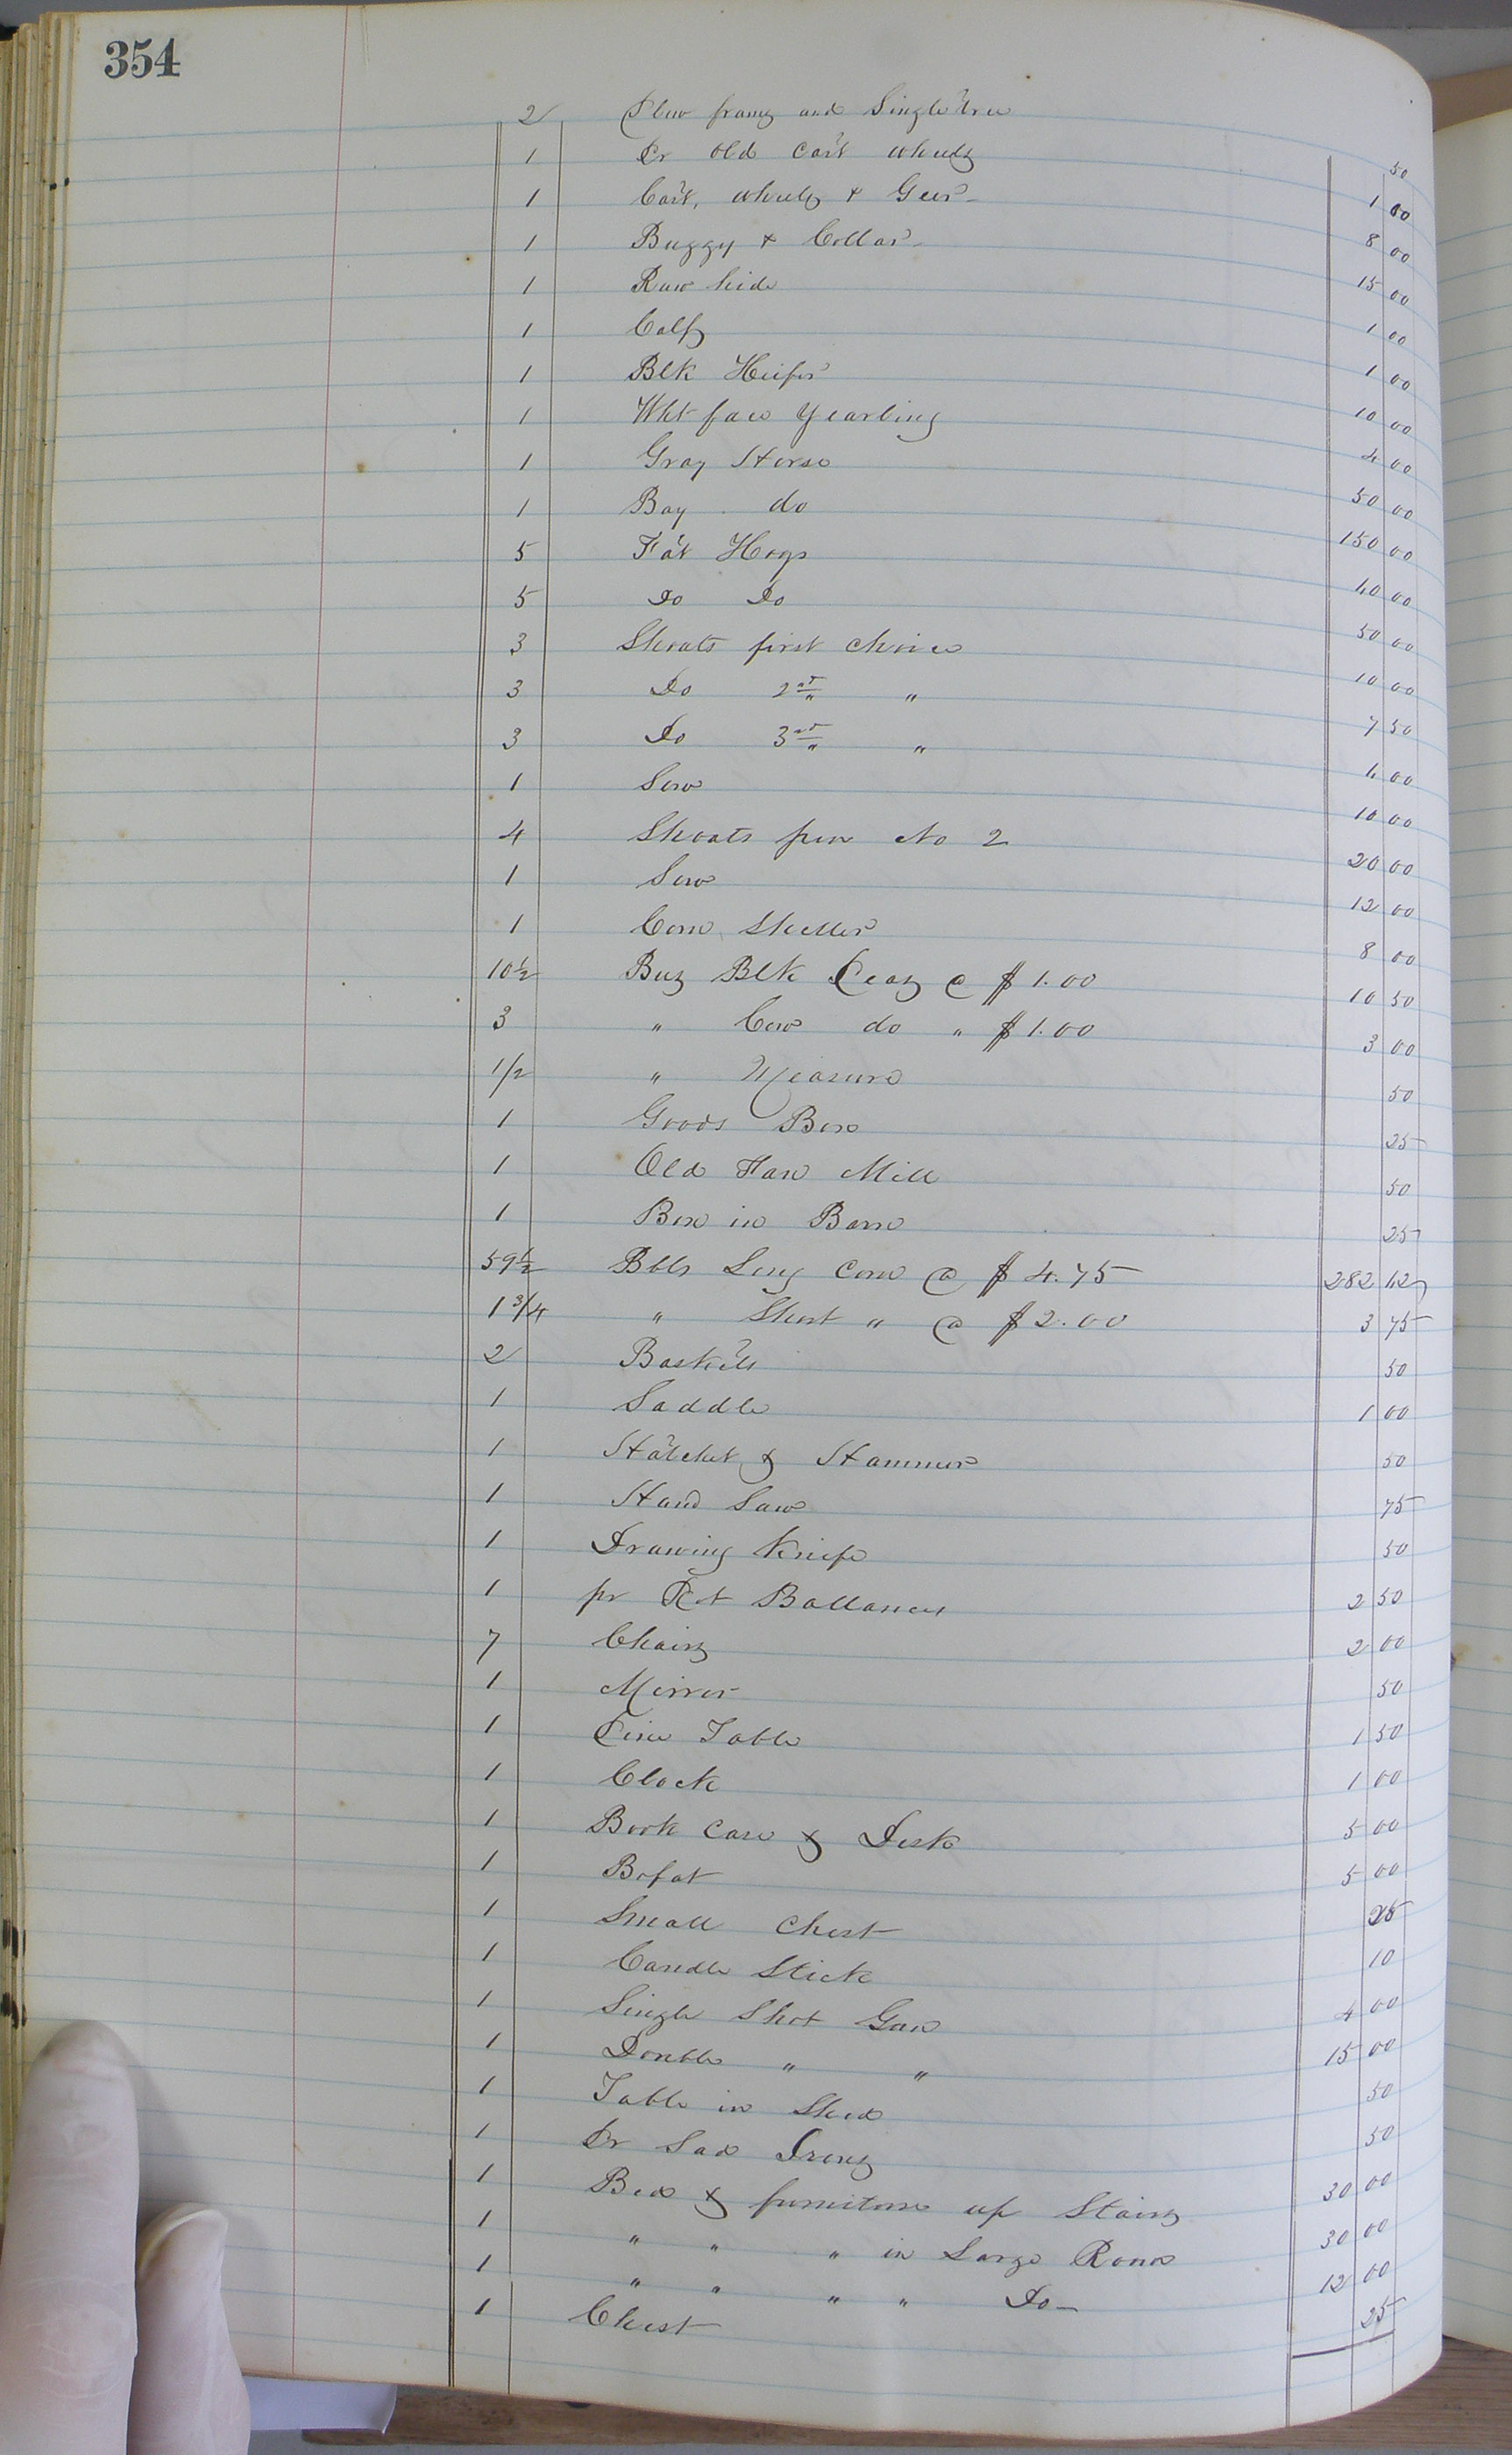 354
2 Plow frames and Singletree 50
1 Pr old cart wheels 1 00
1 Cart, wheels & Geer 8 00
1 Buggy & Collar 15 00
1 Raw hide 1 00
1 Calf 1 00
1 Blk Heifer 10 00
1 Wht face yearling 4 00
1 Gray Horse 50 00
1 Bay do 150 00
5 Fat Hogs 60 00
5 Do Do 50 00
3 Shoats first choice 10 00
3 Do 2nd " 7 50
3 Do 3rd " 6 00
1 Sow 10 00
4 Shoats pen No 2 20 00
1 Sow 12 00
1 Corn Sheller 8 00
10½ Bus Blk Peas @ $1.00 10 50
3 " Cow do " $1.00 3 00
1/2 " Measure 50
1 Goods Box 25
1 Old Fan Mill 50
1 Box in Barn 25
59½ Bbls Long Corn @ $4.75 282 62
1 3/4 " Short " @ $2.00 3 75
2 Baskets 50
1 Saddle 1 00
1 Hatchet & Hammer 50
1 Hand Saw 75
1 Drawing Knife 50
1 pr Pct Ballances 2 50
7 Chairs 2 00
1 Mirror 50
1 Pine Table 1 50
1 Clock 1 00
1 Book case & Desk 5 00
1 Bofat 5 00
1 Small Chest 25
1 Candle Stick 10
1 Single Shot Gun 4 00
1 Double " " 15 00
1 Table in Shed 50
1 Pr Sad Irons 50
1 Bed & furniture up Stairs 30 00
1 " " " in Large Room 30 00
1 " " " " Do 12 00
1 Chest 25